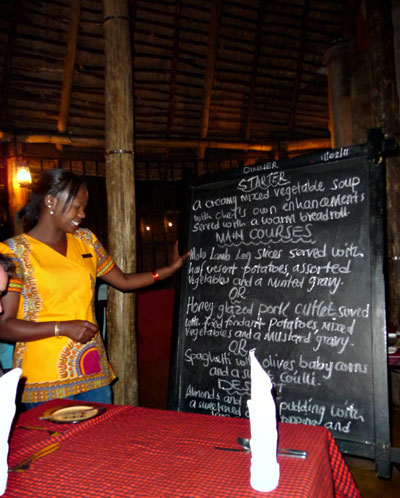 DINNER 11/02/11
STARTER
A creamy mixed vegetable soup
with chef's own enhancements
served with a warm bread roll
MAIN COURSES
Lamb Leg slices served with
potatoes, assorted
vegetables and a minted gravy.
OR
Honey glazed pork cutlet served
with fried fondant Potatoes, mixed
vegetables and a mustard gravy.
OR
Spaghetti with olives, baby corns
and a
DES
Almonds and pudding with
a sweetened
and